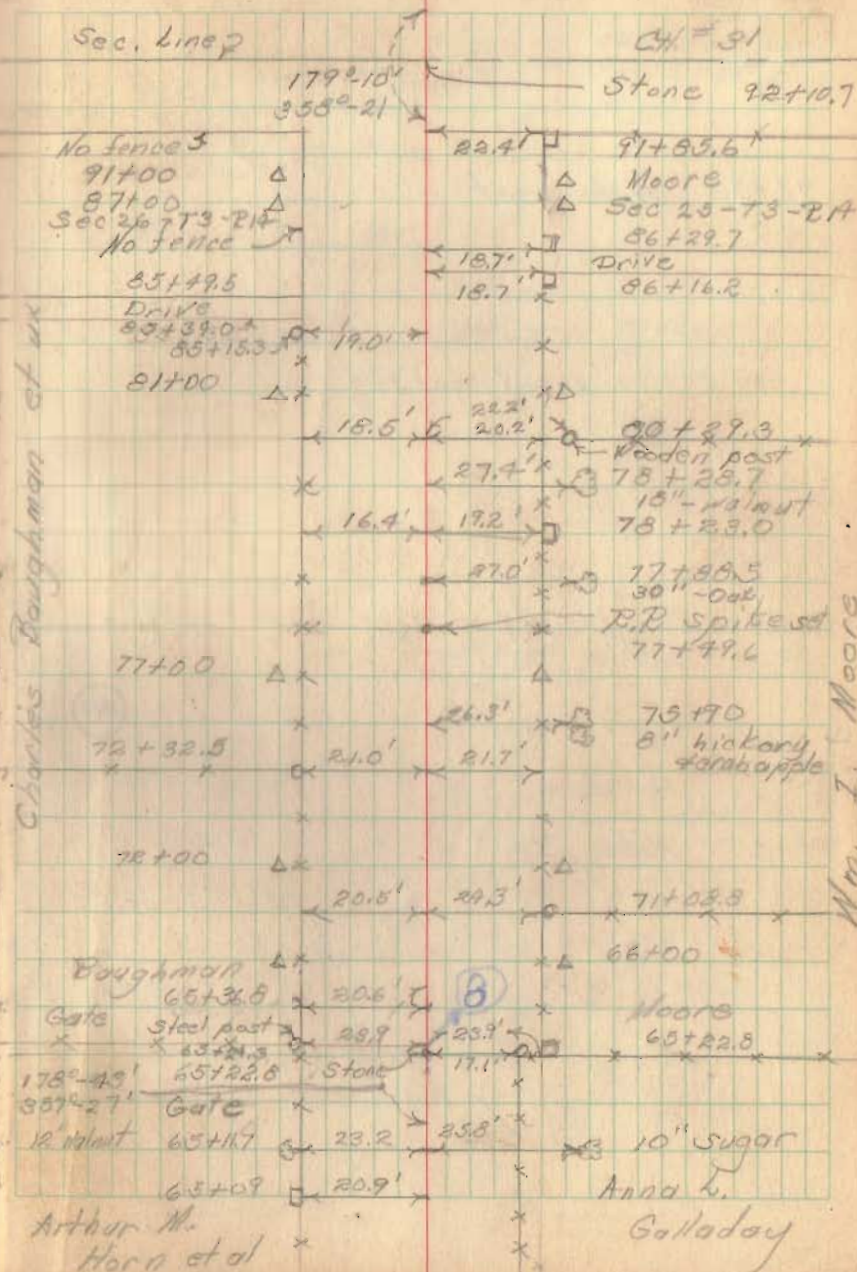 Sec. Line?
CH. #31
179°-10'
358°-21'
Stone 92+10.7
No fence
22.4'
91+85.6
91+00
Moore
87+00
Sec 25-T3-R
Sec 26-T3-R
No fence
86+29.7
18.7'
Drive
85+49.5
18.7'
86+16.2
Drive
85+39.0
19.0'
85+15.3
81+00
22.2'
18.5'
20.2'
80+29.3
Wooden post
27.4'
78+28.7
18"-walnut
16.4'
19.2'
78+23.0
27.0'
77+88.5
30"-Oak
R.R. Spike set
77+49.6
77+00
26.3'
75+90
8" hickory
72+32.5
21.0'
21.7'
72+00
20.5'
71+08.8
66+00
Baughman
65+36.8
20.6'
8
Moore
Gate
Steel post
23.9'
65+22.8
17.1'
178°-43'
65+22.8
Stone
357°-27'
Gate
12" walnut
65+11.7
23.2
25.8'
10" sugar
65+09
20.9'
Anna L.
Galladay
Arthur M.
Horn et al
Charles Baughman et ux
Wm. I. Moore